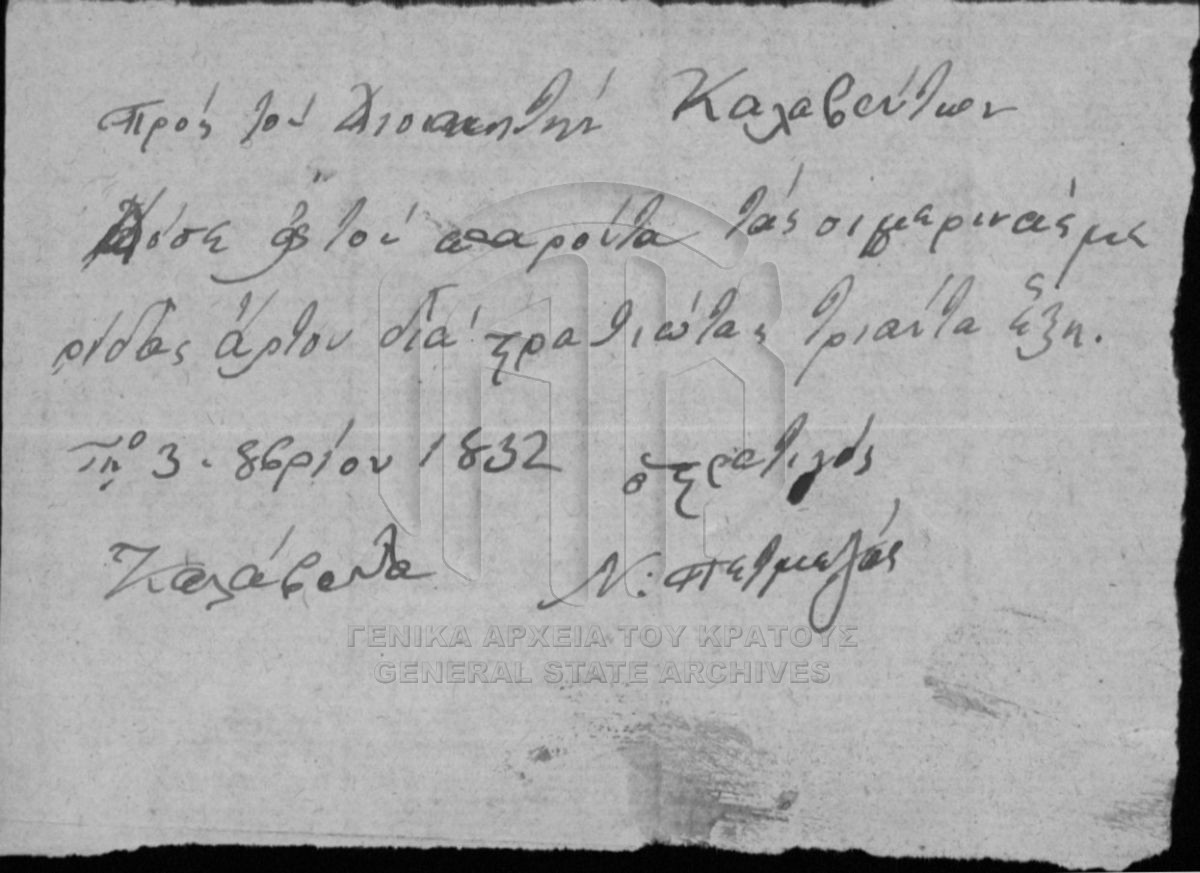 πρός τόν Διοικητήν Καλαβρύτων
Δόσε τόν παρόντα τάς σιμερινάς με
ρίδας άρτου διά στρατιώτας τριάντα έξη.
Τη 3. 8βρίου 1832 ὁ στρατιγός
Καλάβρυτα Ν. πετμεζάς
ΓΕΝΙΚΑ ΑΡΧΕΙΑ ΤΟΥ ΚΡΑΤΟΥΣ
GENERAL STATE ARCHIVES